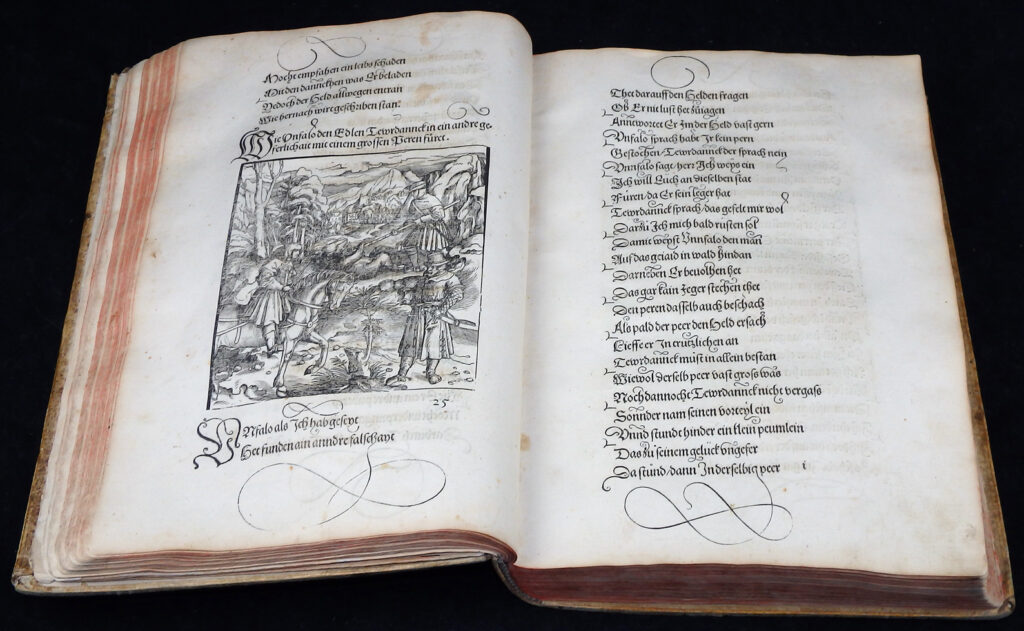 Nocht empfahen ein leibs schaden
Mit den dannckhen was Er beladen
Yedoch der Held allwegen entran
Wie hernach wirt geschriben stan.
Wie Unfalo den Edlen Tewrdanck in ein andre ge-
ferlichait mit einem grossen Peren füret.
25
Unfalo als Ich hab geseyt
Het funden ain anndre falschayt
Thet darauff den Helden fragen
Ob Er nit lust het zuiagen
Anntwortet Er Im der Held vast gern
Unfalo sprach habt Ir kein pern
Gestochen/Tewrdannck der sprach nein
Unnfalo sagt/herr Ich weys ein
Ich will Euch an dieselben stat
Füren/da Er sein leger hat
Tewrdannck sprach/das gefelt mir wol
Darzu Ich mich bald rusten sol
Damit weyst Unnfalo den man
Auf das geiaid in wald hindan
Darneben Er bevolhen het
Das gar kain Jeger stechen thet
Den peren dasselb auch beschach
Als pald der peer den Held ersach
Lieffe er In trutzlichen an
Tewrdannck must in allein bestan
Wiewol derselb peer vast gross was
Nochdannocht Tewrdannck nicht vergass
Sonnder nam seinen vorteyl ein
Unnd stundt hinder ein klein peumlein
Das zu seinem gelück ungefer
Da stund/dann In derselbig peer i